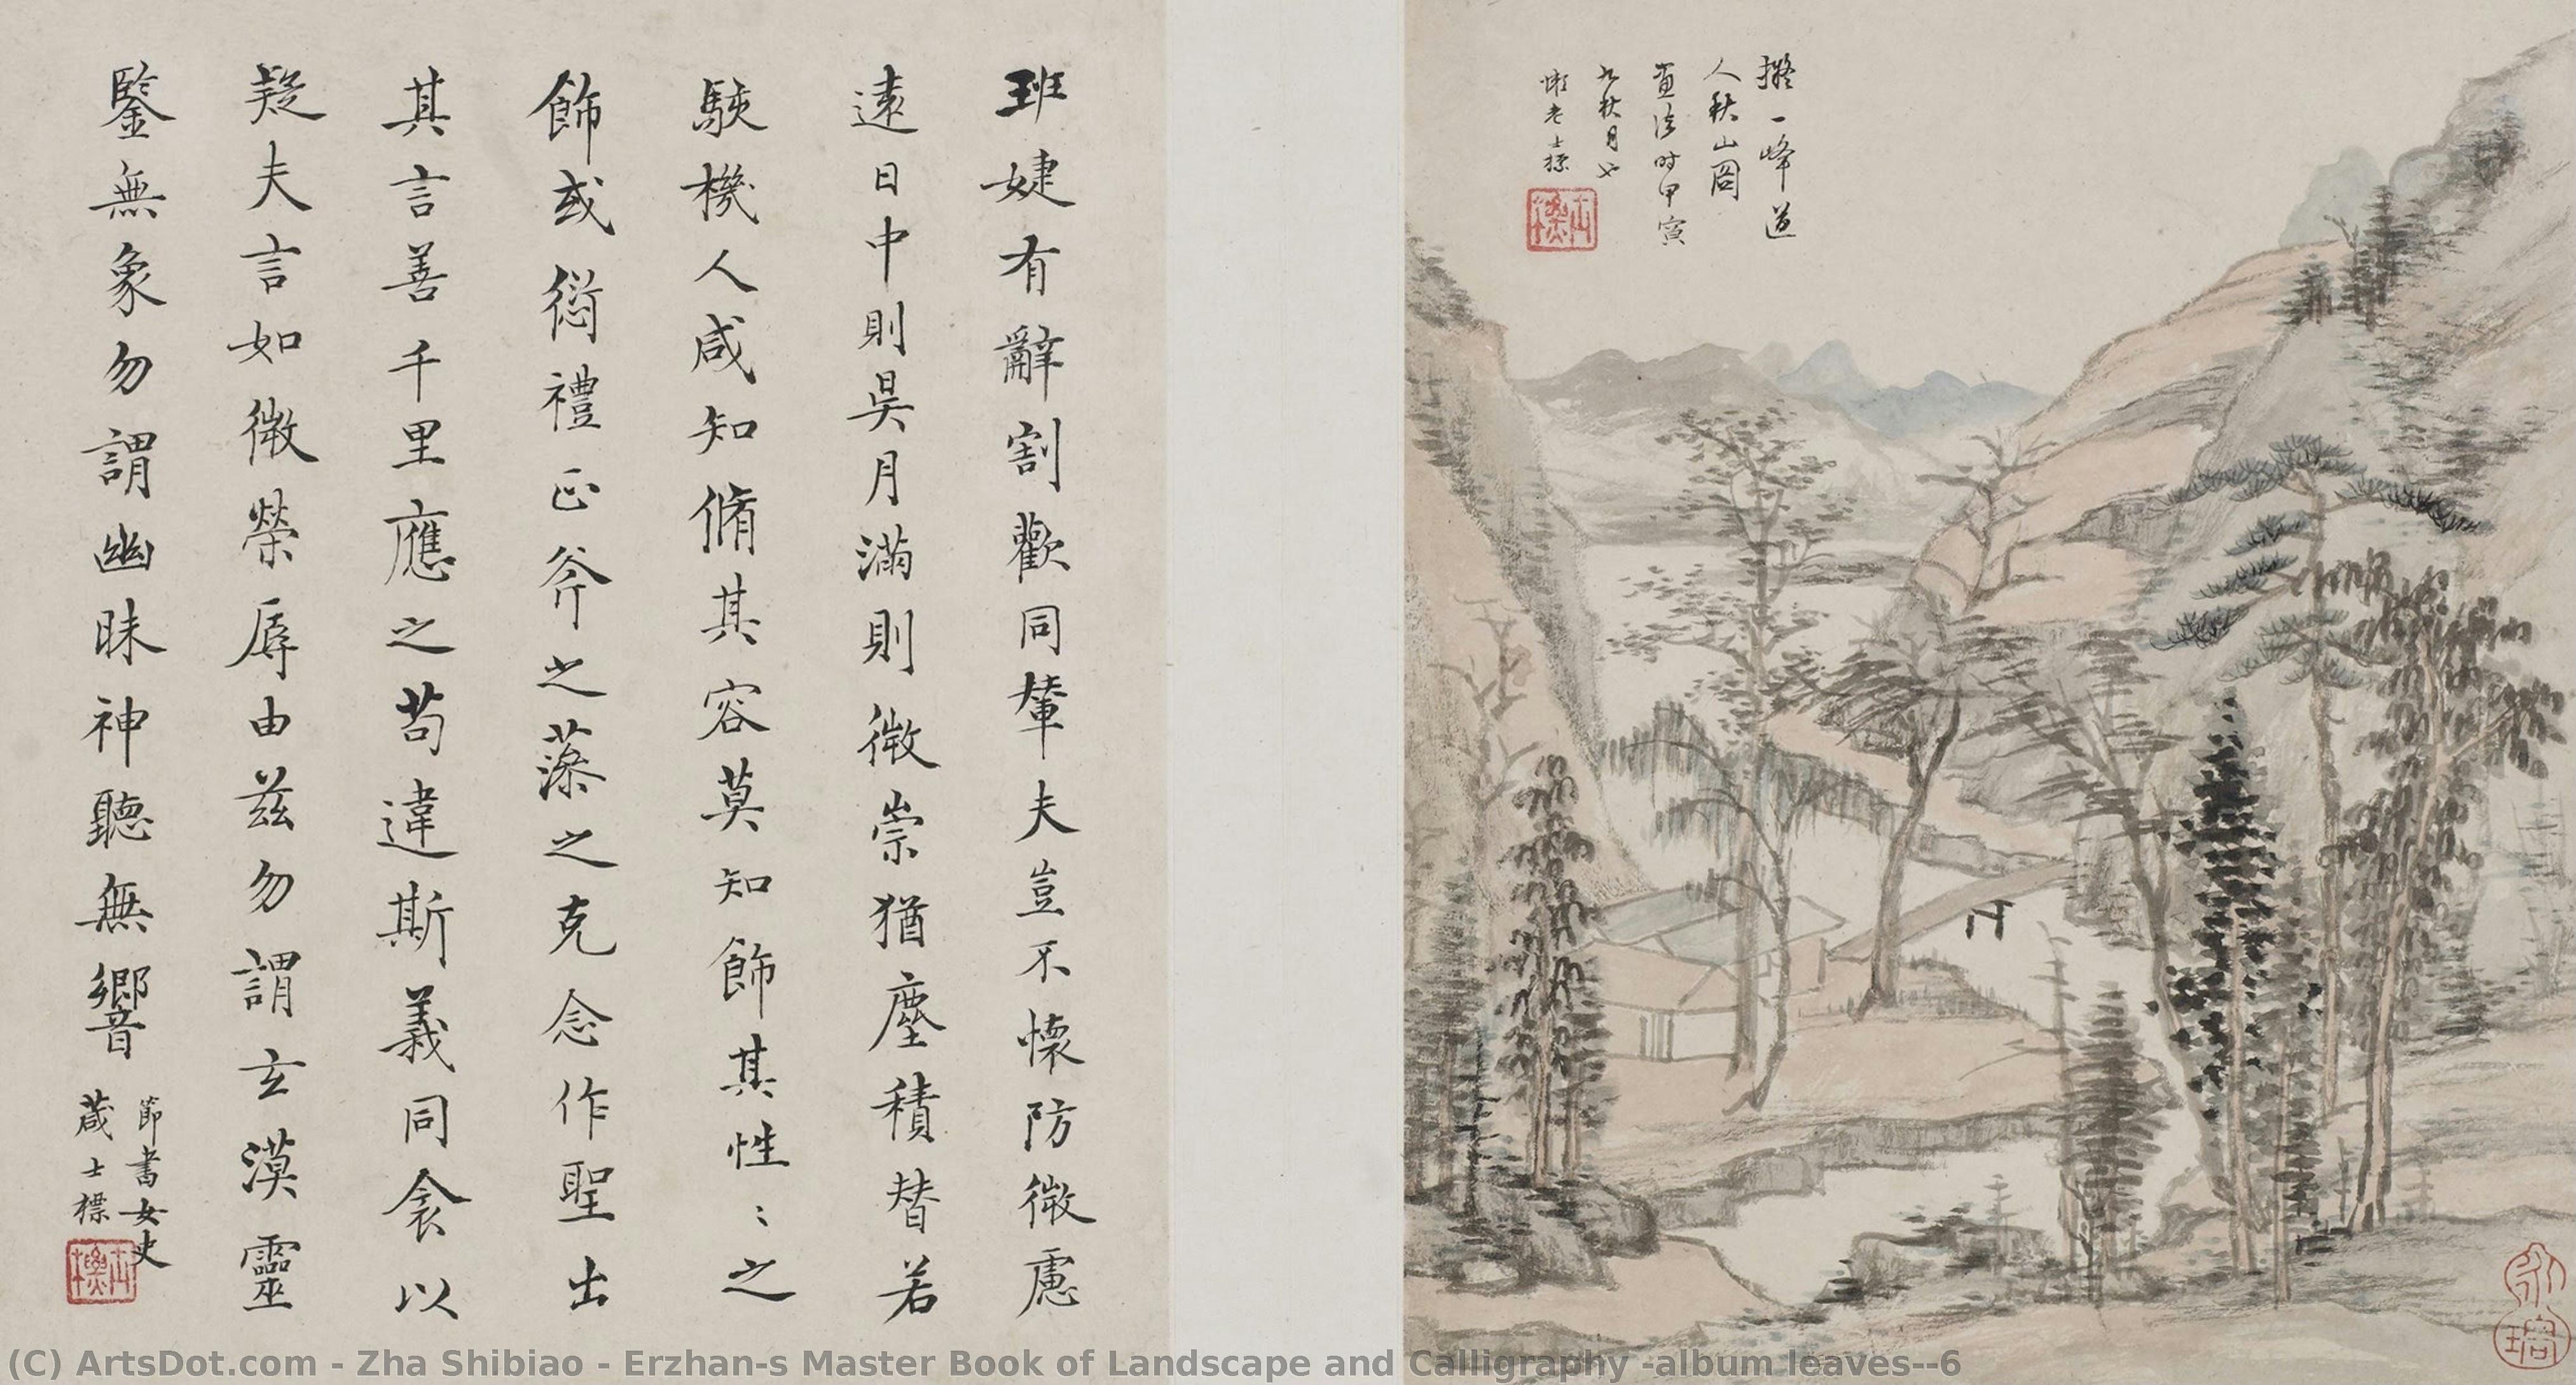 擬一峰道
人秋山圖
畫法时甲寅
九秋月
懶老士標
士標
永瑢
班婕有辭割歡同輦夫豈不懷防微慮
遠日中則昃月滿則微崇猶塵積替若
駭機人咸知脩其容莫知飾其性〻之
飾或愆禮正斧之藻之克念作聖出
其言善千里應之苟違斯義同衾以
疑夫言如微榮辱由茲勿謂玄漠靈
鑒無象勿謂幽昧神聽無響
節書女史
箴士標
士標
(C) ArtsDot.com - Zha Shibiao - Erzhan-s Master Book of Landscape and Calligraphy -album leaves--6